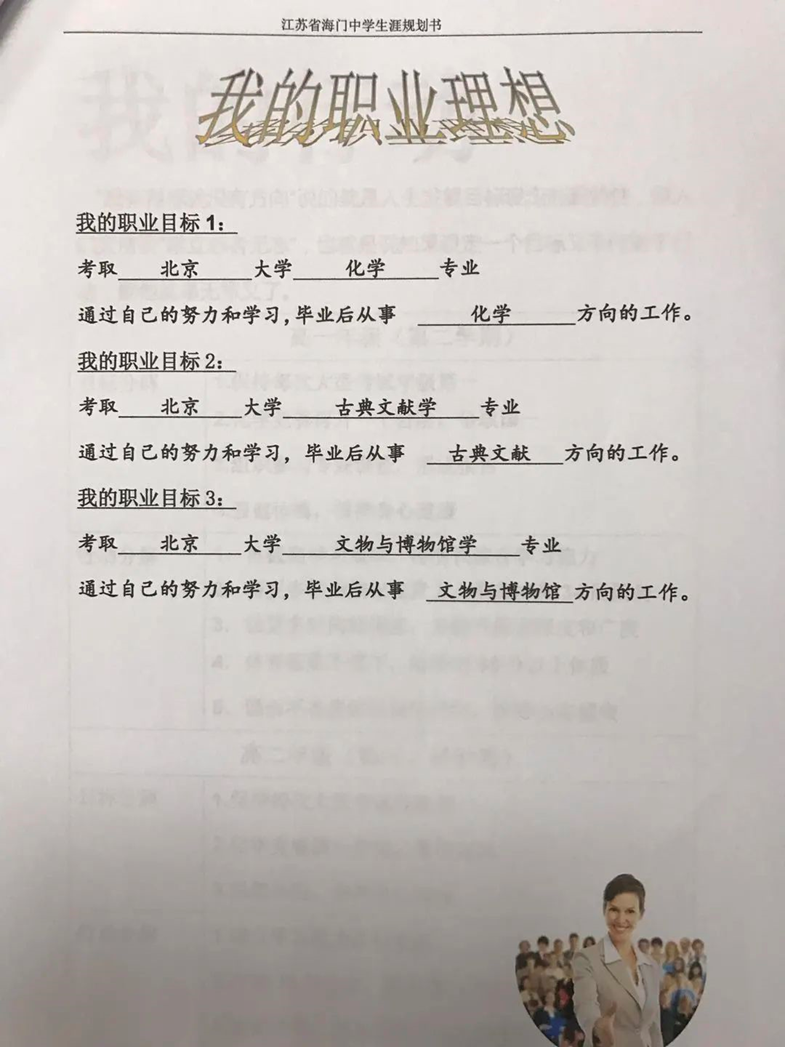 江苏省海门中学生涯规划书
我的职业理想
我的职业目标1：
考取 北京 大学 化学 专业
通过自己的努力和学习，毕业后从事 化学 方向的工作。
我的职业目标2：
考取 北京 大学 古典文献学 专业
通过自己的努力和学习，毕业后从事 古典文献 方向的工作。
我的职业目标3：
考取 北京 大学 文物与博物馆学 专业
通过自己的努力和学习，毕业后从事 文物与博物馆 方向的工作。